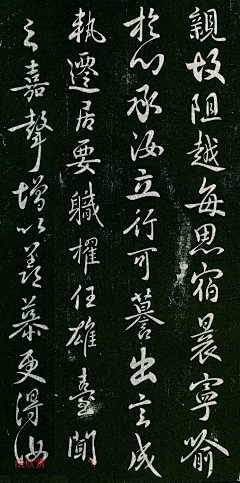 親故阻越每思宿晨寧喻
於心承汝立行可暮出言成
執遷居要職擢任雄臺聞
之嘉聲增以羨慕更得汝